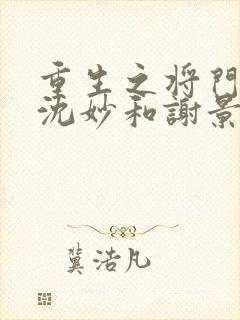 重生之将门
沈妙和謝景
冀浩凡